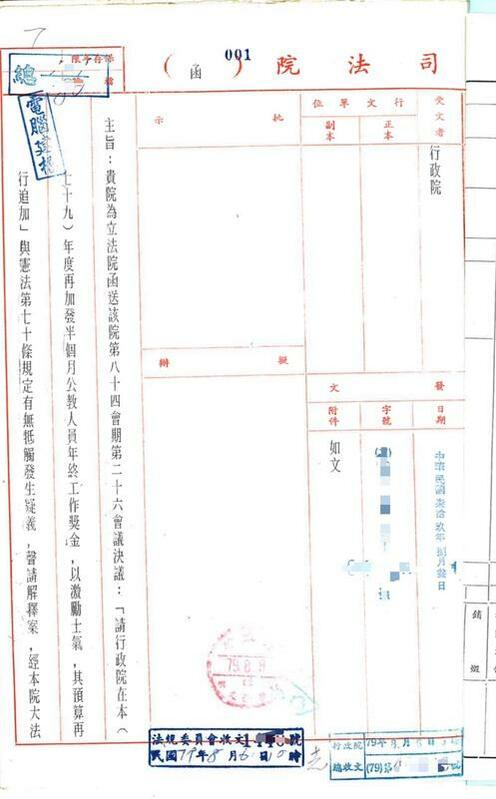 001
司法院（函）
保存年限
總
電腦建檔
受文者
行政院
行文單位
正本
副本
批示
擬辦
發文
日期
中華民國柒拾玖年
月
日
字號
附件
如文
主旨：貴院為立法院函送該院第八十四會期第二十六會議決議：「請行政院在本（
七十九）年度再加發半個月公教人員年終工作獎金，以激勵士氣，其預算再
行追加」與憲法第七十條規定有無牴觸發生疑義，聲請解釋案，經本院大法
79.8.
法規委員會收文
號
民國79年8月6日10時
行政院
79年8月
總收文
(79)第
號